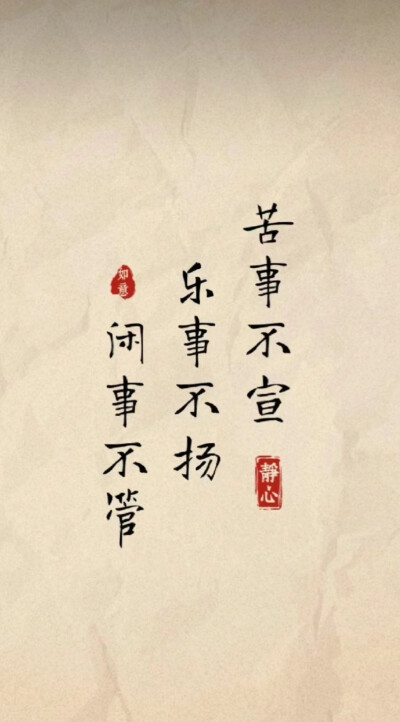 苦事不宣
静心
乐事不扬
如意
闲事不管